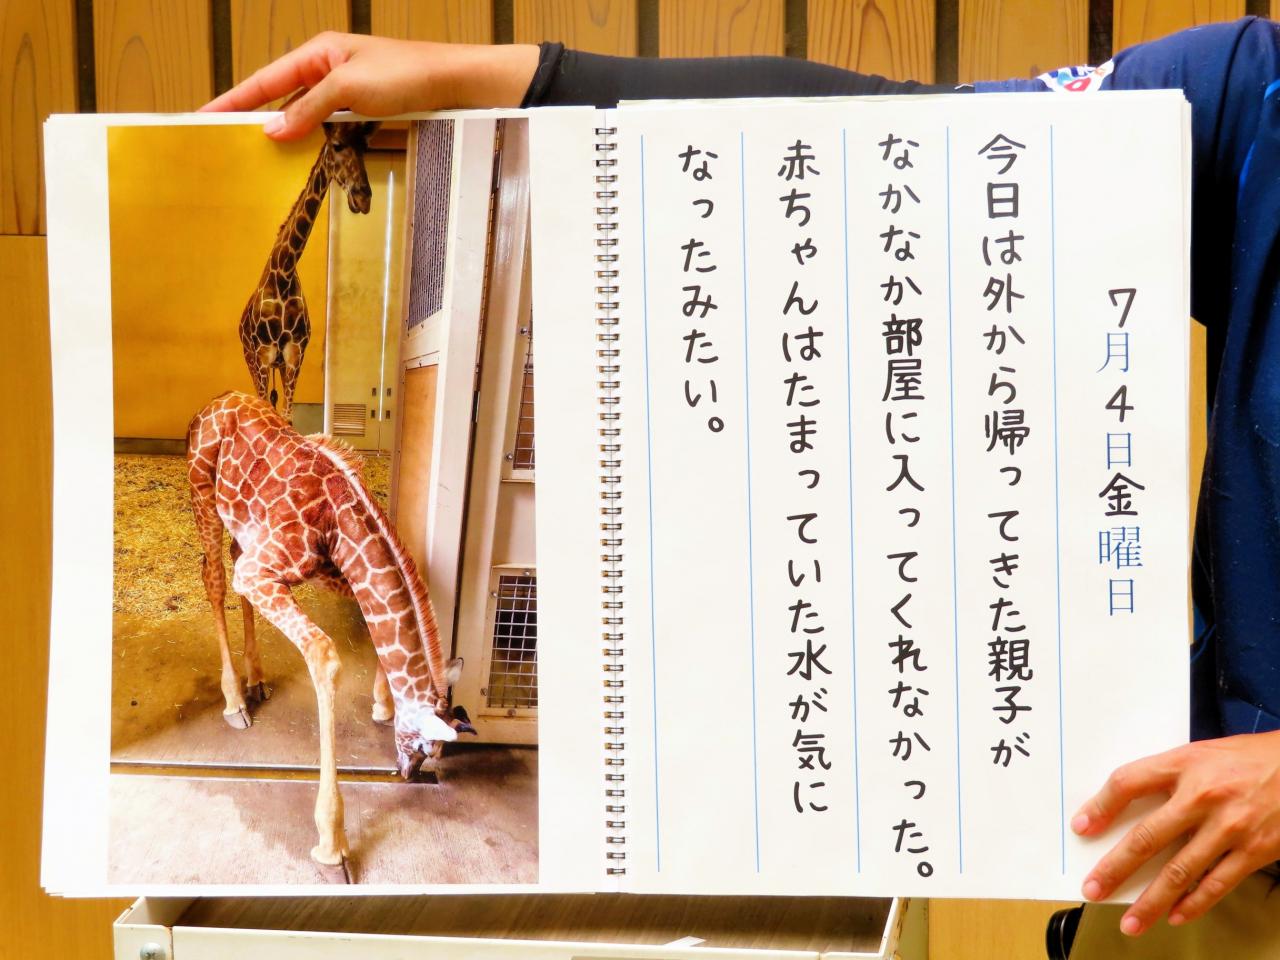 7月4日金曜日
今日は外から帰ってきた親子が
なかなか部屋に入ってくれなかった。
赤ちゃんはたまっていた水が気に
なったみたい。